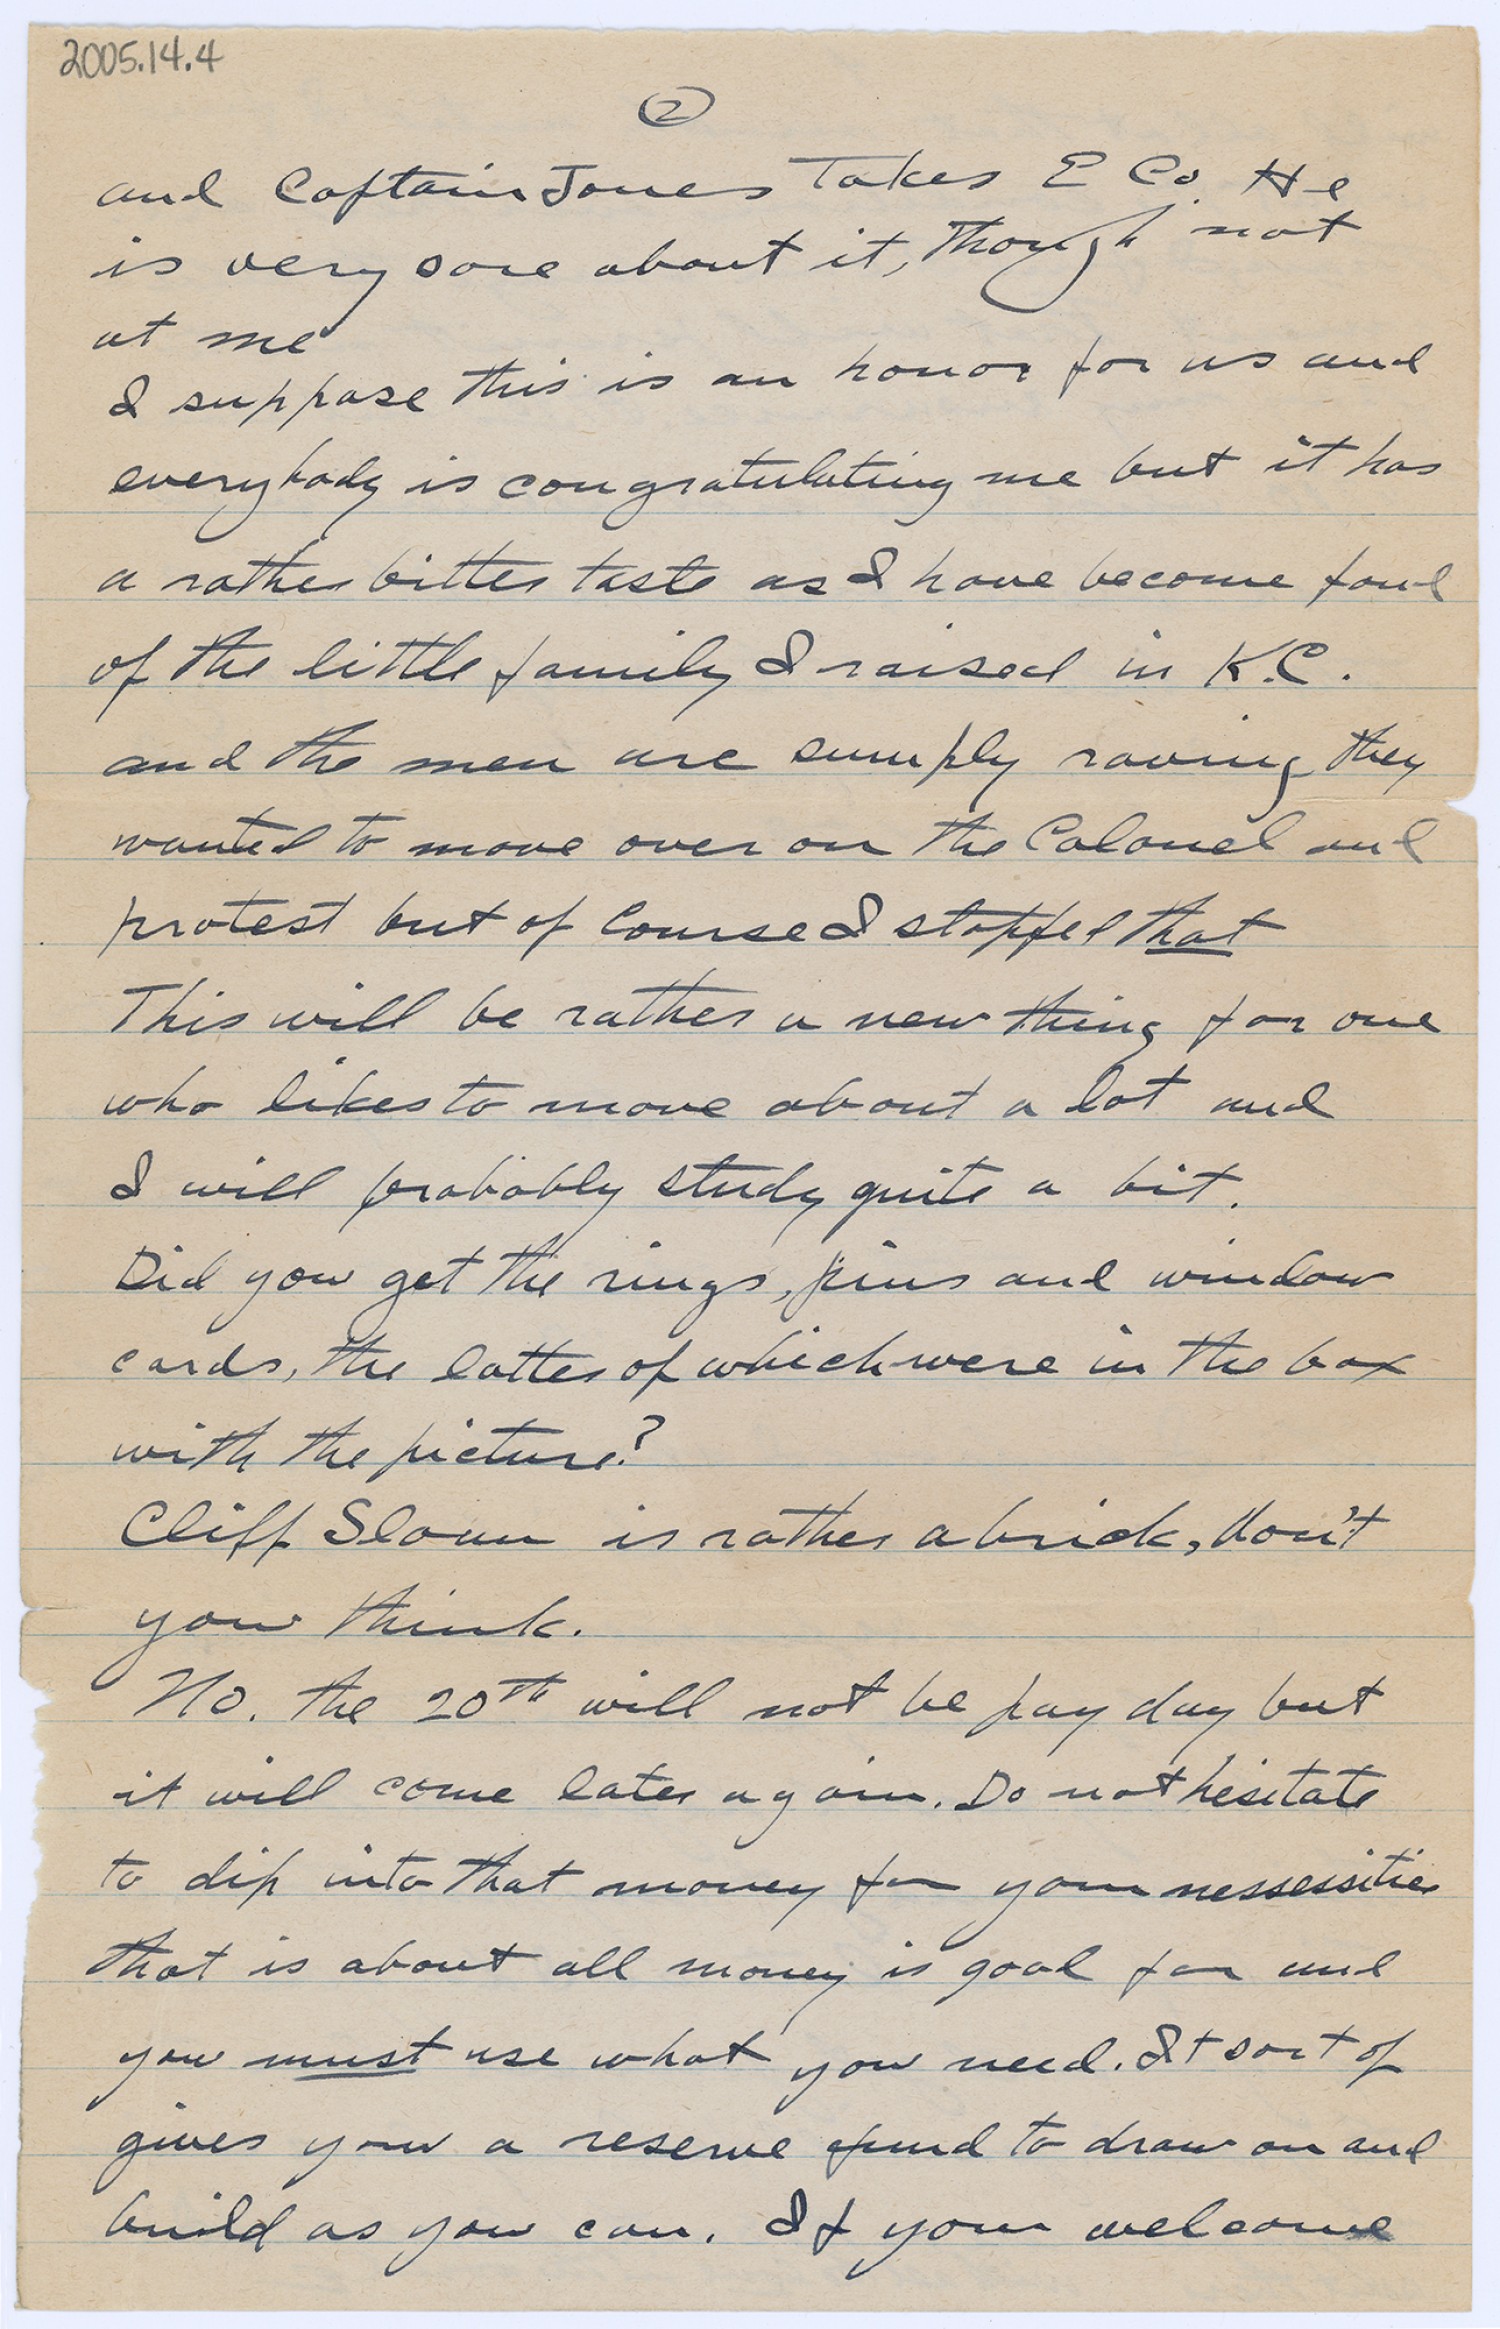 2005.14.4
2
and Captain Jones Takes E Co. He
is very sore about it, though not
at me
I suppose this is an honor for us and
everybody is congratulating me but it has
a rather bitter taste as I have become fond
of the little family I raised in K.C.
and the men are sumply raving they
wanted to move over on the Colonel and
protest but of course I stopped that
This will be rather a new thing for one
who likes to move about a lot and
I will probably study quite a bit.
Did you get the rings, pins and window
cards, the latter of which were in the box
with the picture?
Cliff Sloan is rather a brick, don't
you think.
No. the 20th will not be pay day but
it will come later again. Do not hesitate
to dip into that money for your nessessities
that is about all money is good for and
you must use what you need. It sort of
gives you a reserve fund to draw on and
build as you can. If your welcome